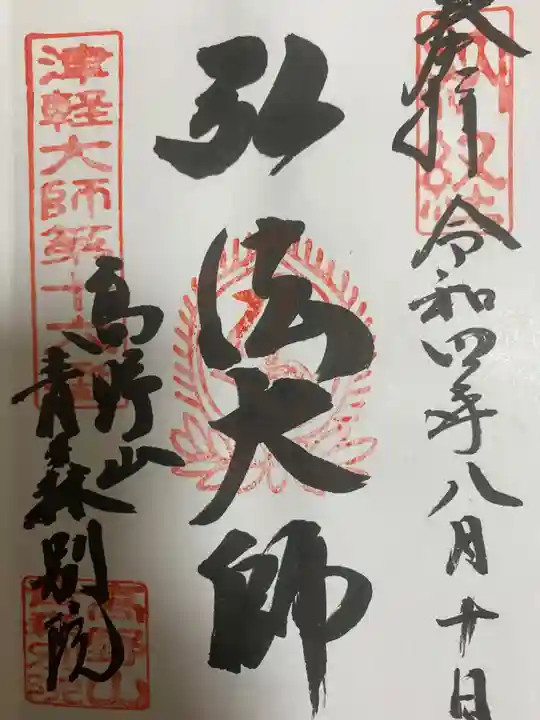 奉拝
令和四年八月十日
弘法大師
津軽大師第十
高野山
青森別院
高野山